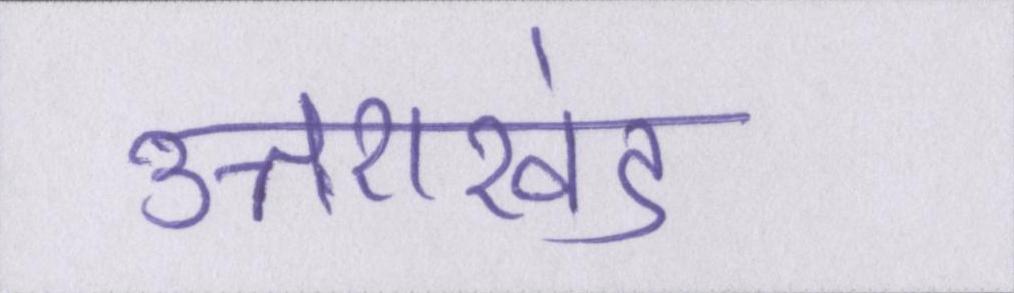 उत्तराखंड